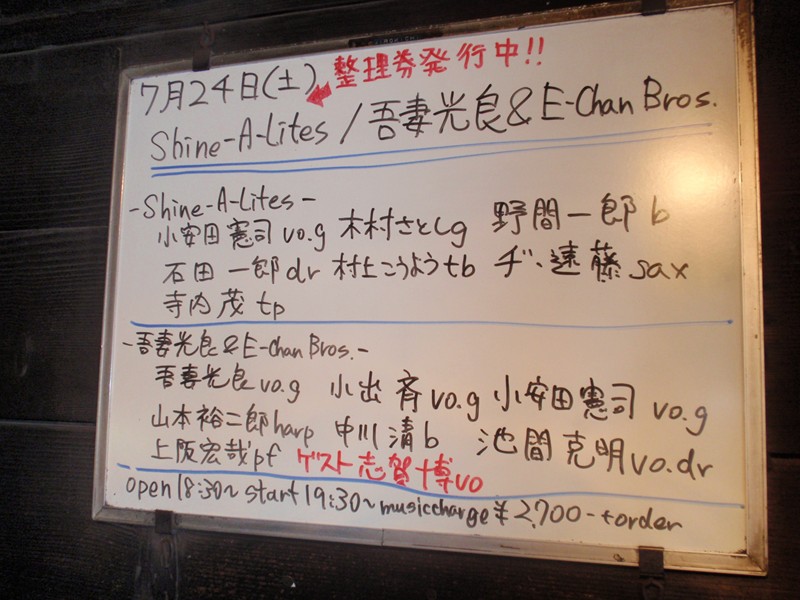 7月24日(土) 整理券発行中!!
Shine-A-Lites / 吾妻光良&E-Chan Bros.
-Shine-A-Lites-
小安田憲司vo.g 木村さとしg 野間一郎b
石田一郎dr 村上こうようtb ヂ、遠藤sax
寺内茂tp
-吾妻光良&E-Chan Bros.-
吾妻光良vo.g 小出斉vo.g 小安田憲司vo.g
山本裕二郎harp 中川清b 池間克明vo.dr
上阪宏哉pf ゲスト志賀博vo
open18:30~start19:30~musiccharge¥2,700-+order